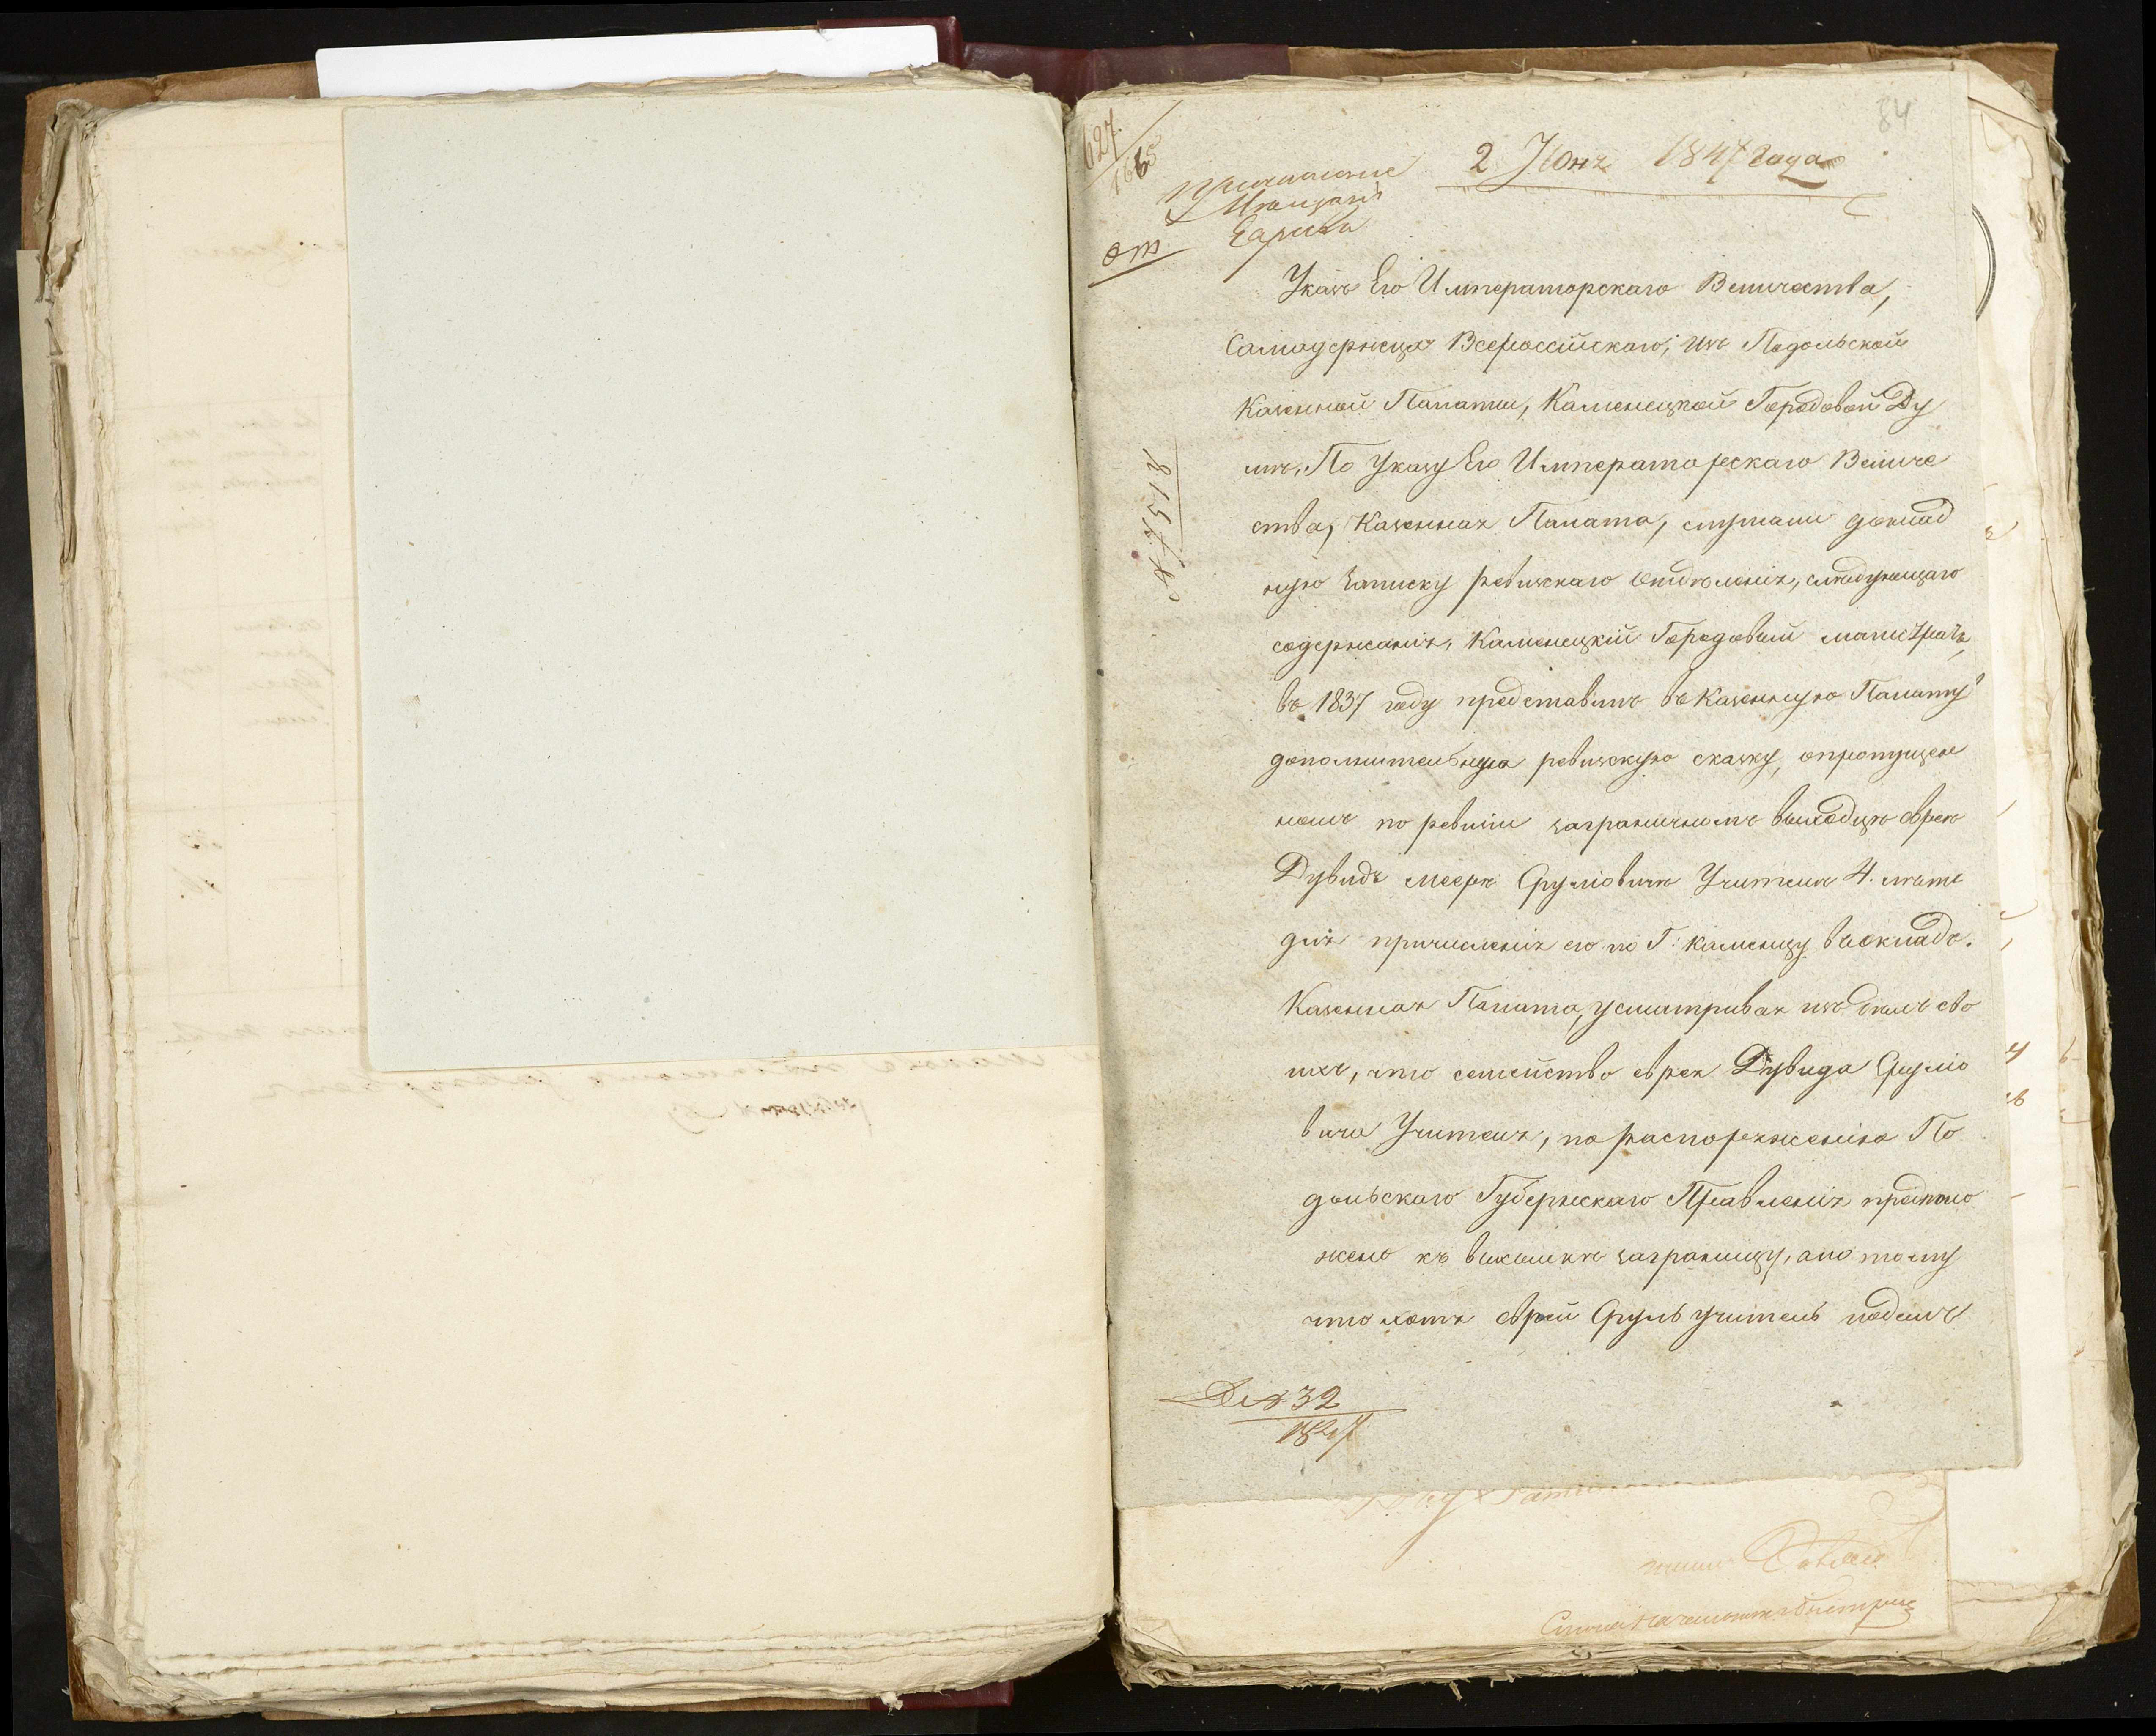 84
627
1665
2 Июня 1847 года
причисление
Мещанъ
от.
Указъ Его Императорскаго Величества,
Самодержца Всероссійскаго; изъ Подольской
Казенной Палаты, Каменецкой Городовой Ду
мѣ. По Указу Его Императорскаго Величе
ства, Казенная Палата, слушали доклад
ную записку ревизскаго отдѣленія, слѣдующаго
содержанія, Каменецкій Городовый магистратъ,
въ 1837 году представилъ въ Казенную Палату
дополнительную ревизскую сказку, опропущен
номъ по ревизіи заграничномъ выходцѣ евреѣ
Дувидъ меерѣ Сруліовичѣ Учителѣ 4. лѣтъ
для причисленія его по Г: каменцу въокладъ.
Казенная Палата, усматривая изъ дѣлъ сво
ихъ, что семейство еврея Дувида Сруліо
вича Учителя, по распоряженію По
дольскаго Губернскаго Правленія предполо
жено къ высылкѣ заграницу, апо тому
что хотя еврей Сруль учитель подалъ
8157
Де № 32
1847